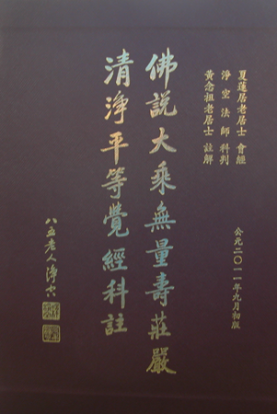 公元二〇一一年九月初版
夏蓮居老居士 會輯
淨空法師 科判
黃念祖老居士 註解
佛說大乘無量壽莊嚴
清淨平等覺經科註
八五老人淨空